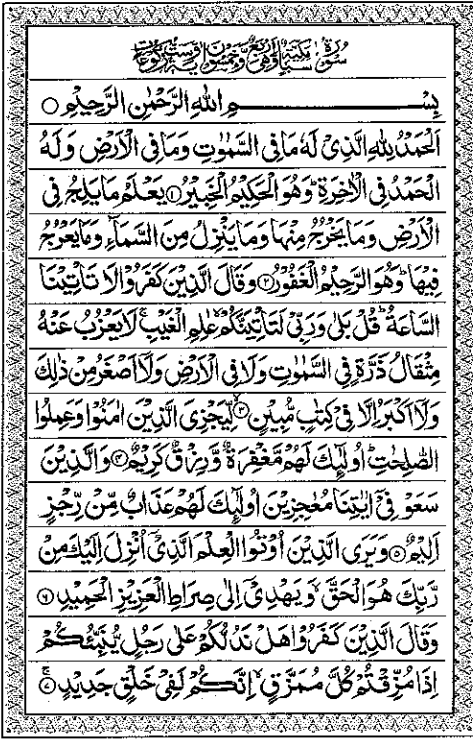 سُوْرَةُ سَبَاٍ مَكِّيَّةٌ وَّهِيَ اَرْبَعٌ وَّخَمْسُوْنَ اٰيَةً وَّسِتُّ رُكُوْعَاتٍ
بِسْمِ اللهِ الرَّحْمٰنِ الرَّحِيْمِ ○
اَلْحَمْدُ لِلّٰهِ الَّذِيْ لَهٗ مَا فِي السَّمٰوٰتِ وَمَا فِي الْاَرْضِ وَلَهُ
الْحَمْدُ فِي الْاٰخِرَةِ ؕ وَهُوَ الْحَكِيْمُ الْخَبِيْرُ ۝۱ يَعْلَمُ مَا يَلِجُ فِي
الْاَرْضِ وَمَا يَخْرُجُ مِنْهَا وَمَا يَنْزِلُ مِنَ السَّمَآءِ وَمَا يَعْرُجُ
فِيْهَا ؕ وَهُوَ الرَّحِيْمُ الْغَفُوْرُ ۝۲ وَقَالَ الَّذِيْنَ كَفَرُوْا لَا تَاْتِيْنَا
السَّاعَةُ ؕ قُلْ بَلٰى وَرَبِّيْ لَتَاْتِيَنَّكُمْ ۙ عٰلِمِ الْغَيْبِ ۚ لَا يَعْزُبُ عَنْهُ
مِثْقَالُ ذَرَّةٍ فِي السَّمٰوٰتِ وَلَا فِي الْاَرْضِ وَلَآ اَصْغَرُ مِنْ ذٰلِكَ
وَلَآ اَكْبَرُ اِلَّا فِيْ كِتٰبٍ مُّبِيْنٍ ۝۳ لِّيَجْزِيَ الَّذِيْنَ اٰمَنُوْا وَعَمِلُوا
الصّٰلِحٰتِ ؕ اُولٰٓئِكَ لَهُمْ مَّغْفِرَةٌ وَّرِزْقٌ كَرِيْمٌ ۝۴ وَالَّذِيْنَ
سَعَوْ فِيْٓ اٰيٰتِنَا مُعٰجِزِيْنَ اُولٰٓئِكَ لَهُمْ عَذَابٌ مِّنْ رِّجْزٍ
اَلِيْمٌ ۝۵ وَيَرَى الَّذِيْنَ اُوْتُوا الْعِلْمَ الَّذِيْٓ اُنْزِلَ اِلَيْكَ مِنْ
رَّبِّكَ هُوَ الْحَقَّ ۙ وَيَهْدِيْٓ اِلٰى صِرَاطِ الْعَزِيْزِ الْحَمِيْدِ ۝۶
وَقَالَ الَّذِيْنَ كَفَرُوْا هَلْ نَدُلُّكُمْ عَلٰى رَجُلٍ يُّنَبِّئُكُمْ
اِذَا مُزِّقْتُمْ كُلَّ مُمَزَّقٍ ۙ اِنَّكُمْ لَفِيْ خَلْقٍ جَدِيْدٍ ۝۷ۚ